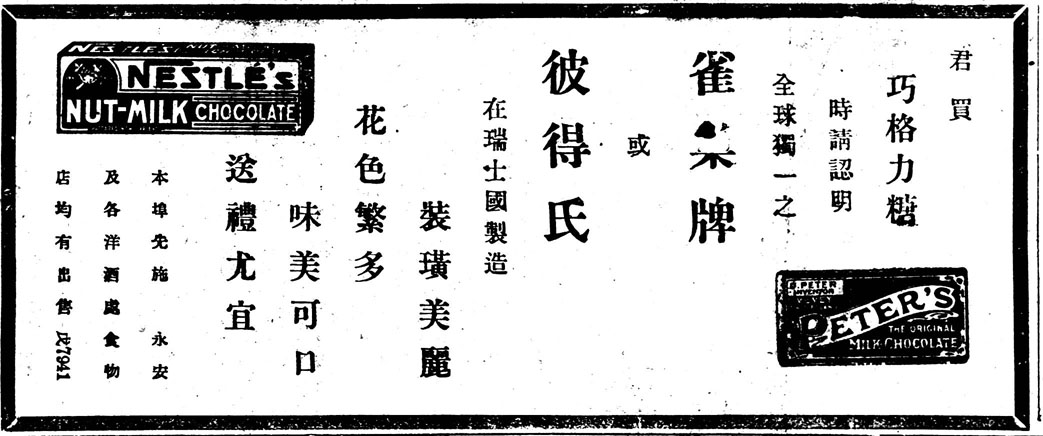 君買
巧格力糖
時請認明
全球獨一之
雀巢牌
或
彼得氏
在瑞士國製造
裝璜美麗
花色繁多
味美可口
送禮尤宜
本埠先施 永安
及各洋酒處食物
店均有出售戍7941
NESTLÉ'S NUT
NESTLÉ'S
NUT-MILK CHOCOLATE
D.PETER
INVENTOR
PETER'S
THE ORIGINAL
MILK CHOCOLATE